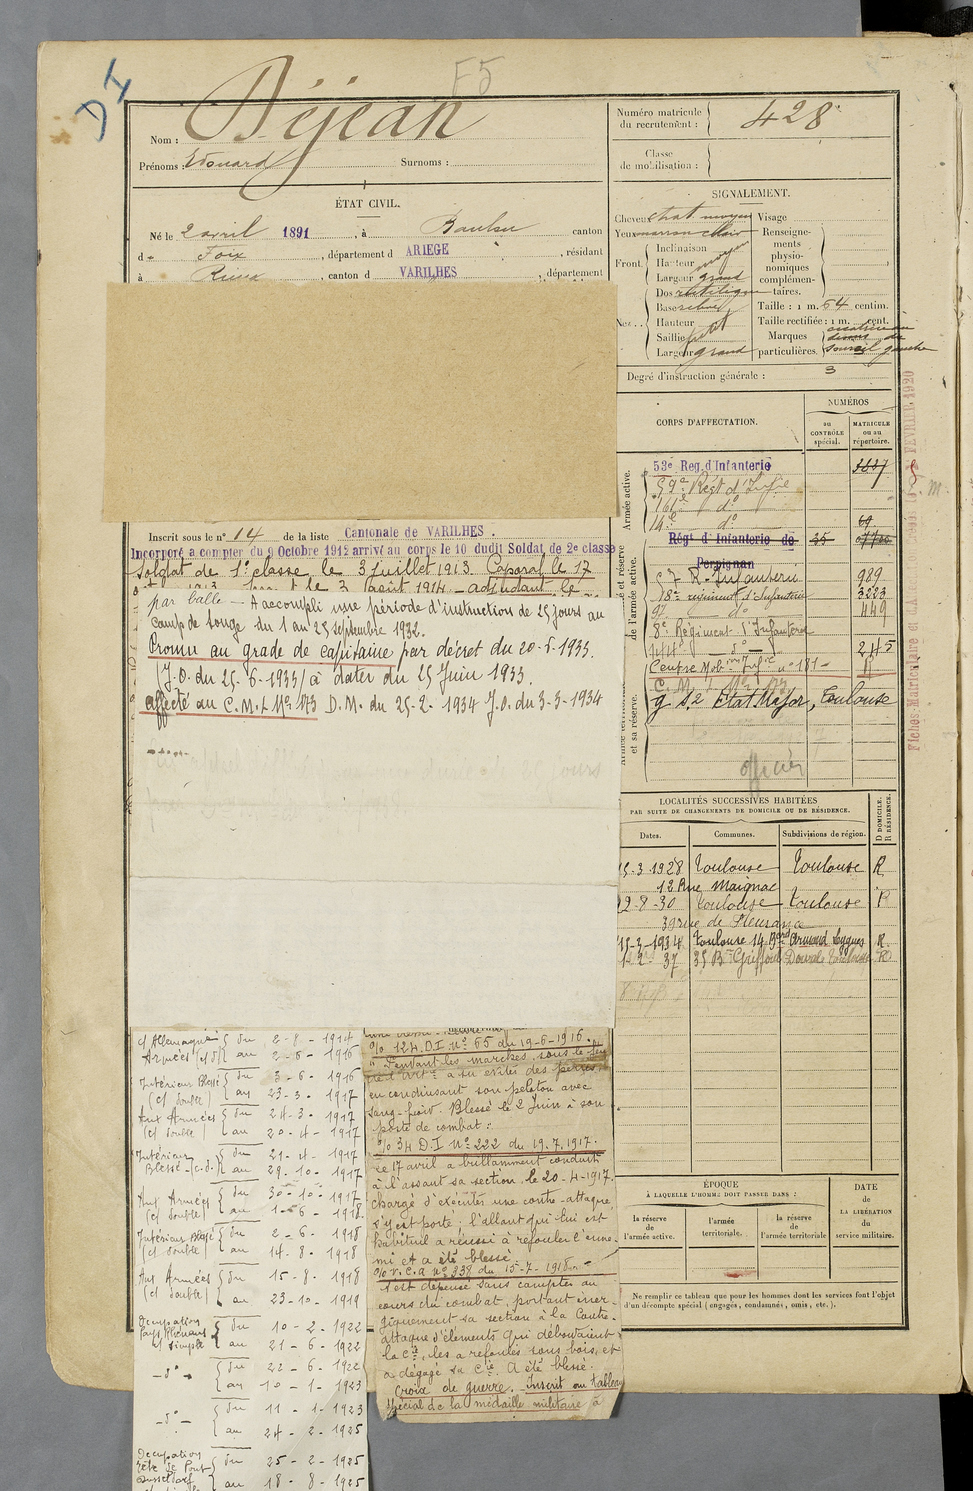 F5
Nom : Déjean
Prénoms : Edouard Surnoms :
ÉTAT CIVIL.
Né le 2 avril 1891, à Baulou canton
de Foix, département d ARIEGE, résidant
à Rieux, canton d VARILHES, département
Inscrit sous le n° 14 de la liste Cantonale de VARILHES.
Incorporé a compter du 9 Octobre 1912 arrivé au corps le 10 dudit Soldat de 2e classe
Soldat de 1e classe le 3 juillet 1913. Caporal le 17
par balle — A accompli une période d'instruction de 25 jours au
Camp de Souge du 1 au 25 septembre 1932.
Promu au grade de capitaine par décret du
(J.O. du 25-6-1933) à dater du 25 Juin 1933.
affecté au C.M.I. No 173 D.M. du 25-2-1934 J.O. du 3-3-1934
c/ Allemagne du 2-8-1914
Armées (cd) au 2-6-1916
Intérieur Blessé du 3-6-1916
(c/ double) au 23-3-1917
Aux Armées du 24-3-1917
(c/ double) au 20-4-1917
Intérieur du 21-4-1917
Blessé (c.d.) au 29-10-1917
Aux Armées du 30-10-1917
(c/ double) au 1-6-1918
Intérieur Blessé du 2-6-1918
(c/ double) au 14-8-1918
Aux Armées du 15-8-1918
(c/ double) au 23-10-1919
Occupation du 10-2-1922
Pays Rhénans
c/ simple au 21-6-1922
-do- du 22-6-1922
au 10-1-1923
-do- du 11-1-1923
au 24-2-1925
Occupation du 25-2-1925
Tête de Pont
Dusseldorf au 18-8-1925
O/o 124 D.I. No 65 du 19-6-1916.
"Pendant les marches sous le feu
de l'Arte a su éviter des pertes
en conduisant son peloton avec
sang-froid. Blessé le 2 Juin à son
poste de combat."
O/o 34 D.I No 222 du 19.7.1917.
Le 17 avril a brillamment conduit
à l'assaut sa section. le 20-4-1917
chargé d'exécuter une contre-attaque
s'y est porté; l'allant qui lui est
habituel a réussi à refouler l'enne-
mi et a été blessé.
No 338 du 15-7-1918.
S'est dépensé sans compter au
cours du combat, portant éner-
giquement sa section à la Contre
attaque d'éléments qui débordaient
la Cie, les a refoulés sous bois, et
a dégagé sa Cie. A été blessé.
Croix de guerre. Inscrit au tableau
spécial de la médaille militaire à
Numéro matricule
du recrutement : 428
Classe
de mobilisation :
SIGNALEMENT.
Cheveux chat moyen Visage
Yeux marron clair
Front. Inclinaison
Hauteur moyen
Largeur grand
Nez.. Dos rectiligne
Base relevé
Hauteur
Saillie petit
Largeur grand
Renseigne-
ments
physio-
nomiques
complémen-
taires.
Taille : 1 m. 64 centim.
Taille rectifiée : 1 m. cent.
Marques
particulières. cicatrice au
dessus du
sourcil gauche
Degré d'instruction générale : 3
CORPS D'AFFECTATION.
NUMÉROS
au
CONTRÔLE
spécial.
MATRICULE
ou au
répertoire.
Armée active.
53e Reg. d'Infanterie
59e Regt d'Infie
161e do
14e do 69
Régt d'Infanterie de 25
Perpignan
57 R. Infanterie 989
18e régiment d'Infanterie 3223
do 449
8e Régiment d'Infanterie
144e do 245
Centre Mob. Infie no 181
C.M.I. No 173
Etat Major, Toulouse
officier
et réserve
de l'armée active.
et sa réserve.
LOCALITÉS SUCCESSIVES HABITÉES
PAR SUITE DE CHANGEMENTS DE DOMICILE OU DE RÉSIDENCE.
Dates. Communes. Subdivisions de région. D DOMICILE. R RÉSIDENCE.
15-3-1928 Toulouse Toulouse R
12 Rue Maignac
22-8-30 Toulouse Toulouse R
39 rue de Fleurance
15-3-1934 Toulouse 14 Bd Armand Leygues R.
37 35 Bd Griffoul Dorval Toulouse R
ÉPOQUE
À LAQUELLE L'HOMME DOIT PASSER DANS :
la réserve
de
l'armée active.
l'armée
territoriale.
la réserve
de
l'armée territoriale
DATE
de
LA LIBÉRATION
du
service militaire.
Ne remplir ce tableau que pour les hommes dont les services font l'objet
d'un décompte spécial (engagés, condamnés, omis, etc.).